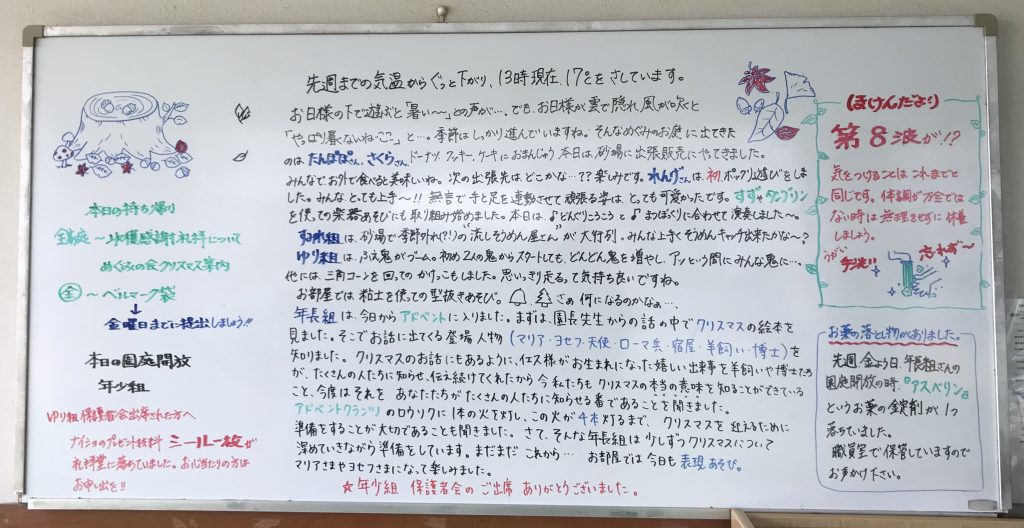 本日の持ち帰り
各家庭〜収穫感謝礼拝について
めぐみの会クリスマス案内
全〜ベルマーク袋
→金曜日までに提出しましょう!!
本日の園庭開放
年少組
ゆり組保護者会出席された方へ
ナイショのプレゼント材料 シール一枚が
礼拝堂に落ちていました。お心当たりの方は
お申し出を!!
先週までの気温からぐっと下がり、13時現在、17℃をさしています。
お日様の下で遊ぶと「暑い〜」との声が…。でも、お日様が雲で隠れ、風が吹くと
「やっぱり暑くないね・ここ」と…。季節はしっかり進んでいますね。そんなめぐみのお庭に出てきた
のはたんぽぽさん、さくらさん ドーナツ、クッキー、ケーキにおまんじゅう 本日は、砂場に出張販売にやってきました。
みんなでお外で食べると美味しいね。次の出張先は、どこかな…??楽しみです。れんげさんは、初、ポックリ遊びをしま
した。みんなとっても上手〜!!無言で手と足を連動させて頑張る姿は、とっても可愛かったです。すずやタンブリン
を使っての楽器あそびにも取り組み始めました。本日は、♪どんぐりころころと♪まつぼっくりに合わせて演奏しました〜。
すみれ組は、砂場で季節外れ(?!)の"流しそうめん屋さん"が大行列。みんな上手くそうめんキャッチ出来たかな〜?
ゆり組は、ふえ鬼がブーム。初め2人の鬼からスタートしても、どんどん鬼を増やし、アッという間にみんな鬼に…。
他には、三角コーンを回ってのかけっこもしました。思いっきり走るって気持ち良いですね。
お部屋では粘土を使っての型抜きあそび。さぁ何になるのかなぁ…。
年長組は、今日からアドベントに入りました。まずは、園長先生からの話の中でクリスマスの絵本を
見ました。そこでお話に出てくる登場人物(マリア・ヨセフ・天使・ローマ兵・宿屋・羊飼い・博士)を
知りました。クリスマスのお話にもあるように、イエス様がお生まれになった嬉しい出来事を羊飼いや博士たち
が、たくさんの人たちに知らせ、伝え続けてくれたから今私たちもクリスマスの本当の意味を知ることができている
こと、今度はそれをあなたたちがたくさんの人たちに知らせる番であることを聞きました。
アドベントクランツのロウソクに1本の火を灯し、この火が4本灯るまで、クリスマスを迎えるために
準備をすることが大切であることも聞きました。さて、そんな年長組は少しずつクリスマスについて
深めていきながら準備をしています。まだまだこれから… お部屋では今日も表現あそび。
マリアさまやヨセフさまになって楽しみました。
☆年少組 保護者会のご出席ありがとうございました。
ほけんだより
第8波が!?
気をつけることはこれまでと
同じです。体調が万全では
ない時は無理をせずに休養
しましょう。
うがい
手洗い
忘れず〜
お薬の落とし物がありました。
先週、金よう日、年長組さんの
園庭開放の時、『アスベリン』
というお薬の錠剤が1つ
落ちていました。
職員室で保管していますので
お声かけ下さい。